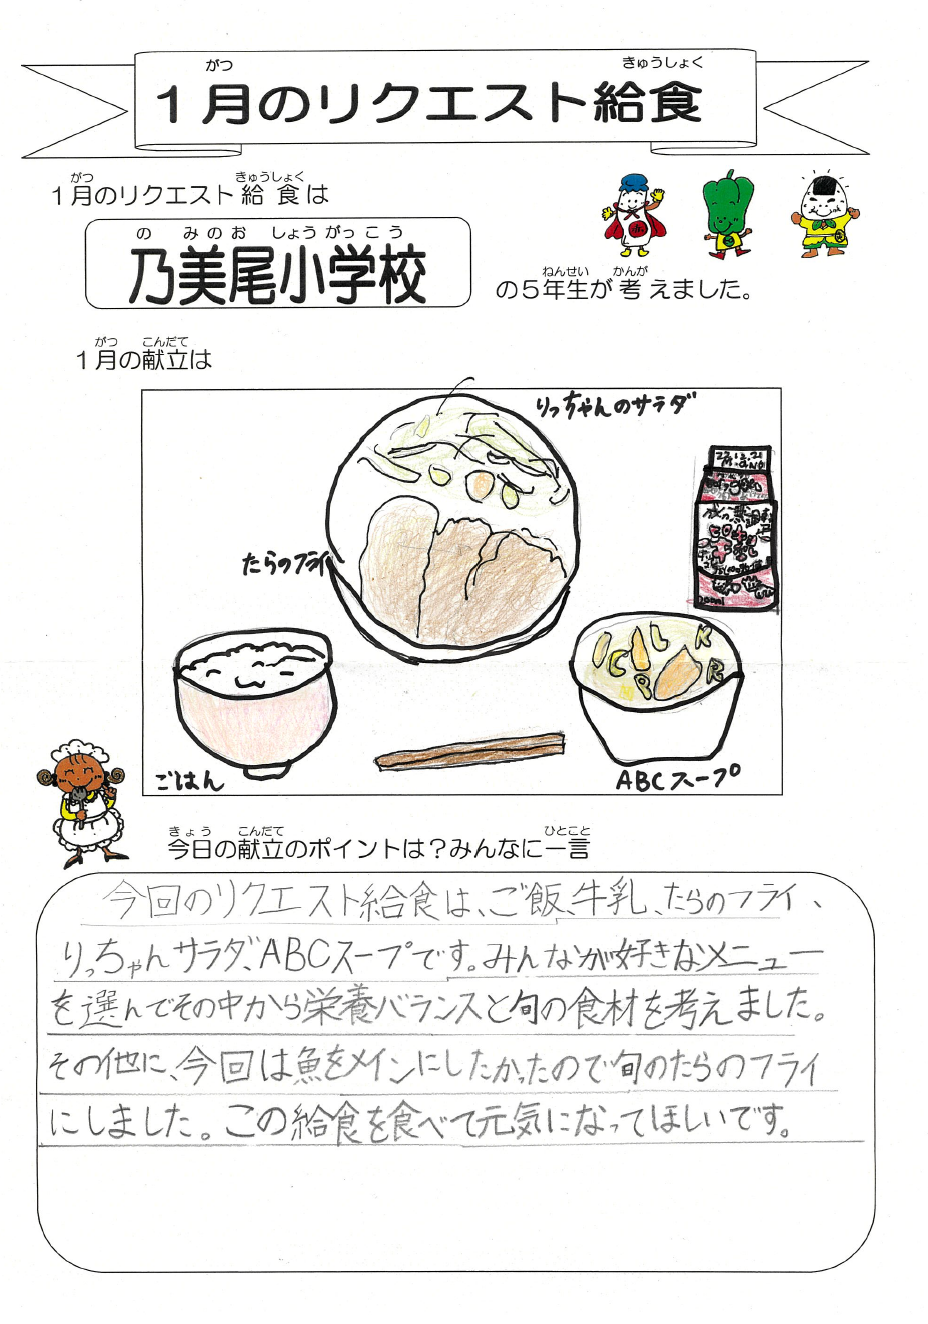 がつ きゅうしょく
1月のリクエスト給食
がつ きゅうしょく
1月のリクエスト給食は
の みのお しょうがっこう
乃美尾小学校
ねんせい かんが
の5年生が考えました。
がつ こんだて
1月の献立は
りっちゃんのサラダ
たらのフライ
I C L K
P R
ごはん
ABCスープ
きょう こんだて ひとこと
今日の献立のポイントは?みんなに一言
今回のリクエスト給食は、ご飯、牛乳、たらのフライ、
りっちゃんサラダ、ABCスープです。みんなが好きなメニュー
を選んでその中から栄養バランスと旬の食材を考えました。
その他に、今回は魚をメインにしたかったので旬のたらのフライ
にしました。この給食を食べて元気になってほしいです。